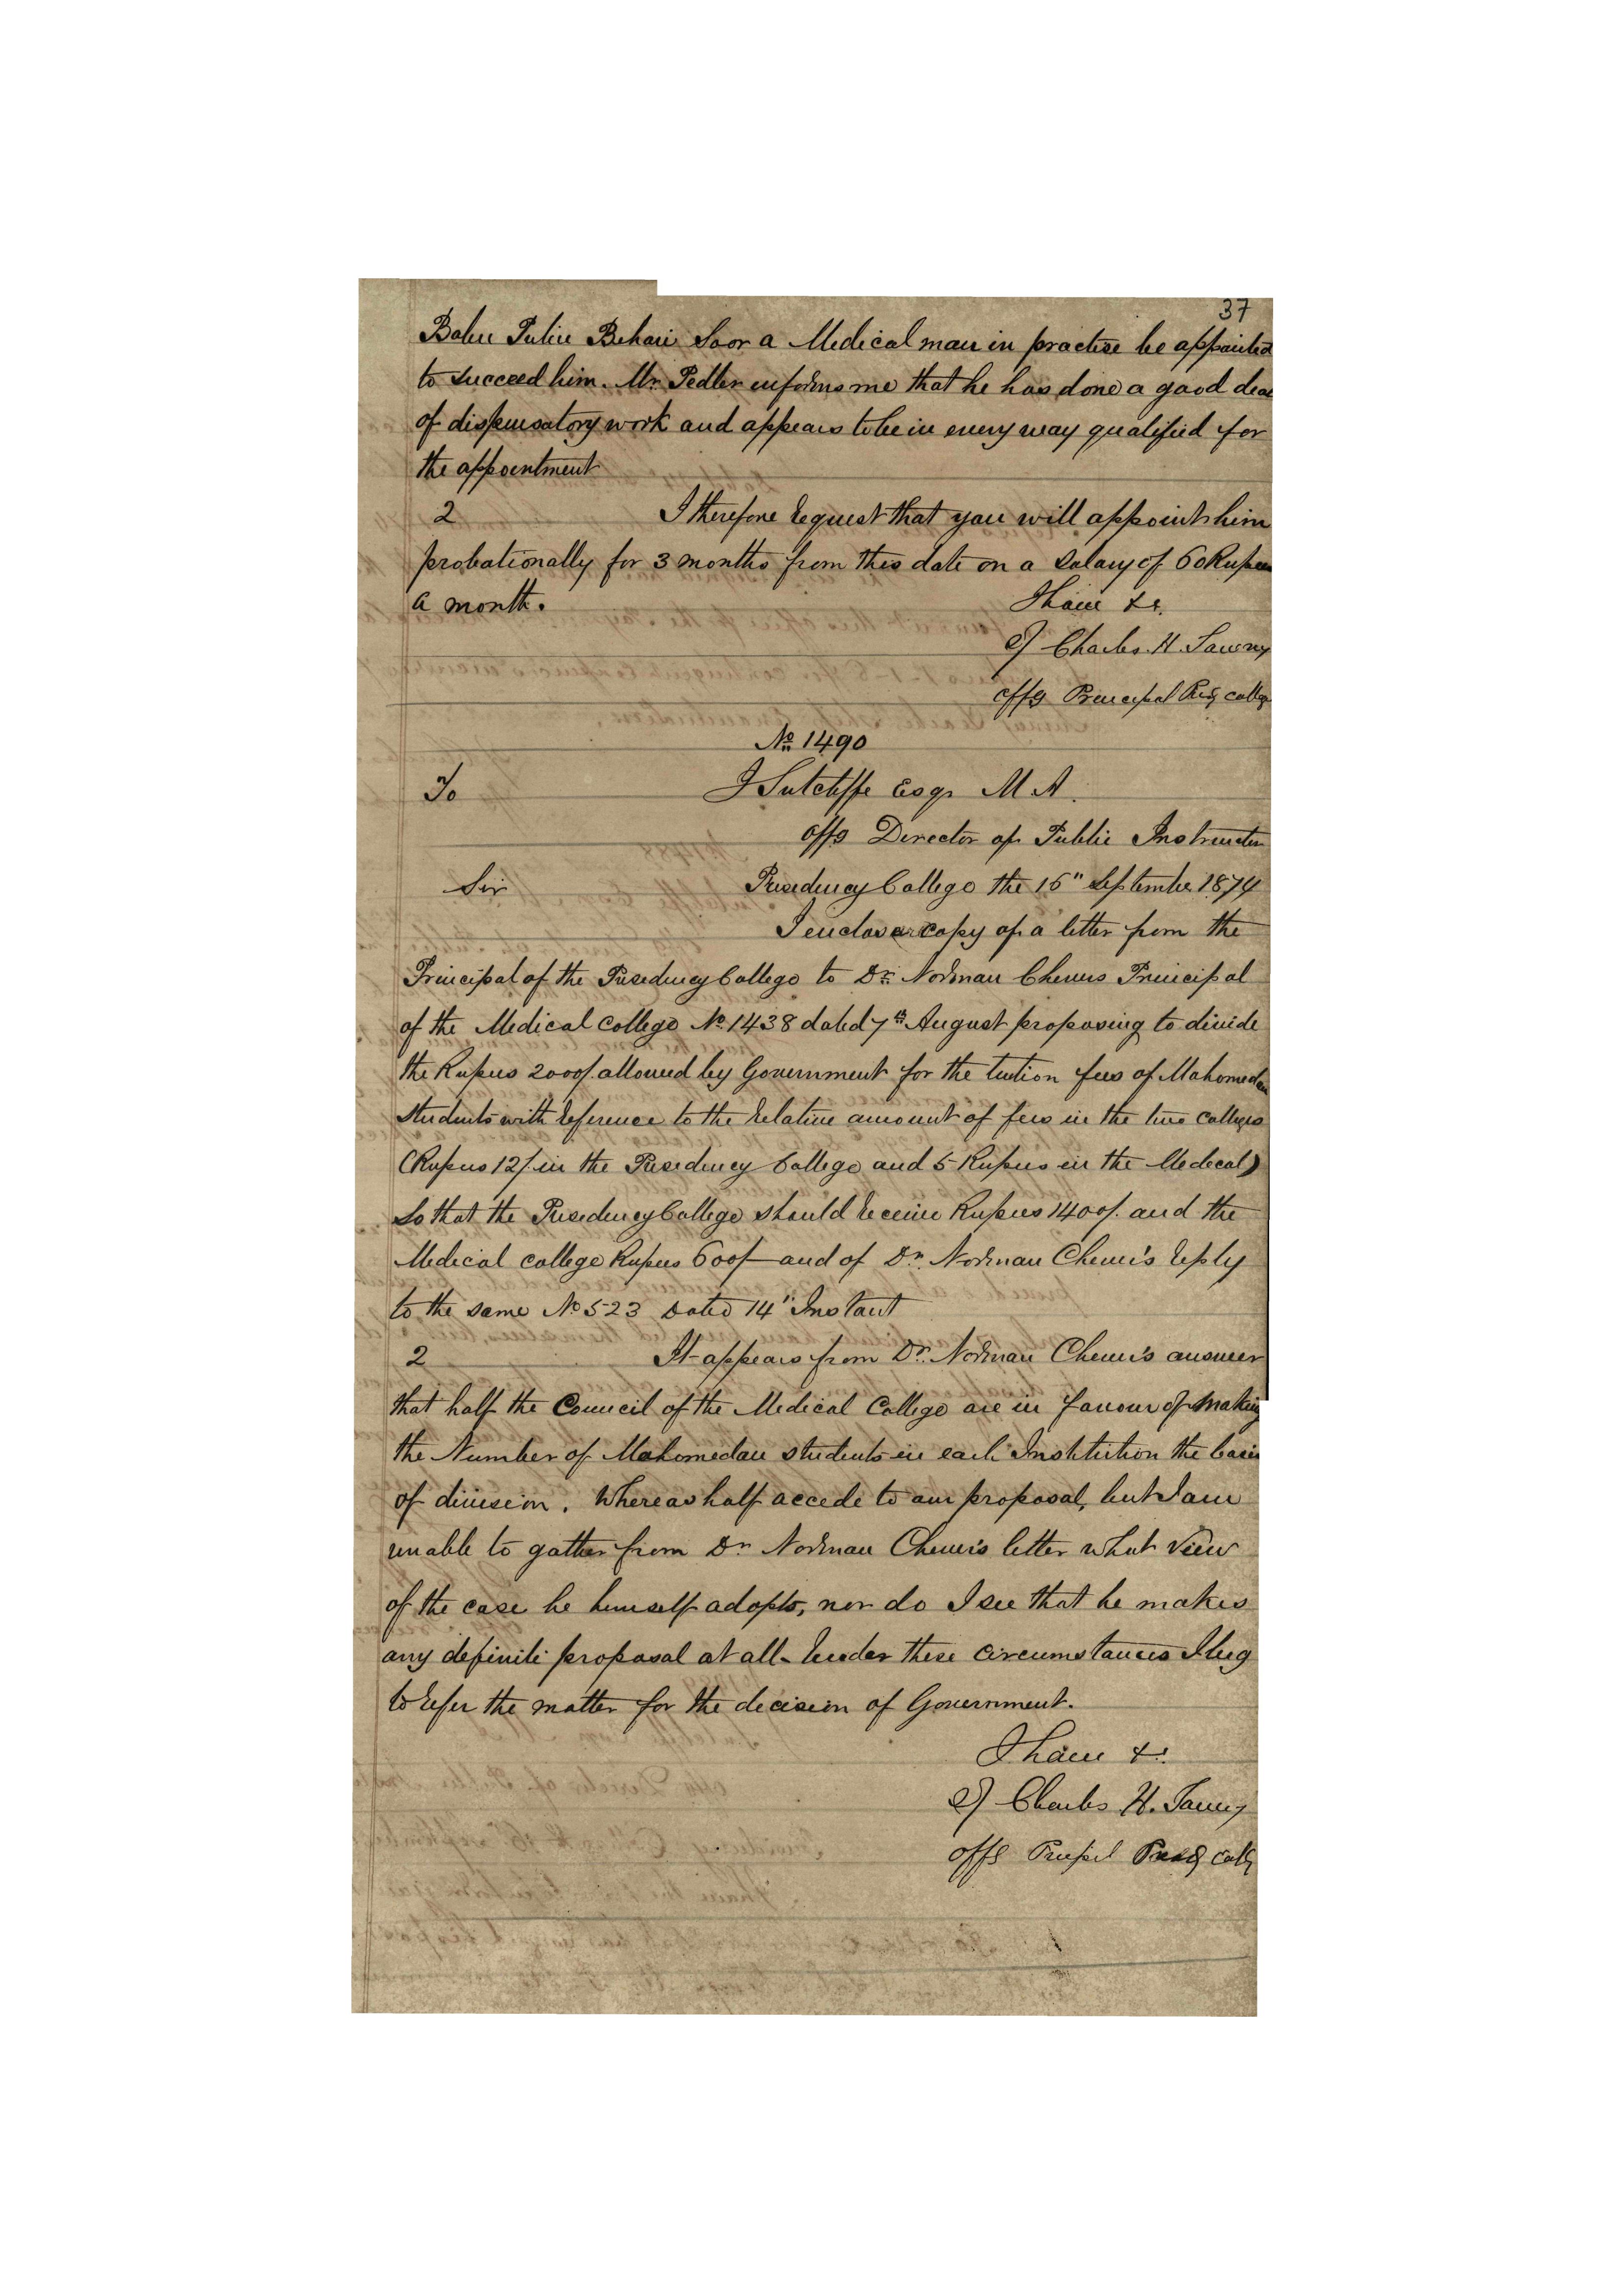 37
Babu Pulin Behari Soor a Medical man in practise be appointed
to succeed him. Mr. Pedler informs me that he has done a good deal
of dispensatory work and appears to be in every way qualified for
the appointment
2 I therefore request that you will appoint him
probationally for 3 months from this date on a salary of 60 Rupees
a month.
I have &c.
Charles H. Tawney
Offg Principal Presy College
No. 1490
To J Sutcliffe Esqr M A.
Offg Director of Public Instruction
Sir Presidency College the 15" September 1874
I enclose a copy of a letter from the
Principal of the Presidency College to Dr. Norman Chevers Principal
of the Medical College No. 1438 dated 7th August proposing to divide
the Rupees 2000/. allowed by Government for the tution fees of Mahomedan
students with reference to the relative amount of fees in the two colleges
(Rupees 12/. in the Presidency College and 5 Rupees in the Medical)
So that the Presidency College should receive Rupees 1400/. and the
Medical college Rupees 600/- and of Dr. Norman Chever's reply
to the same No 523 Dated 14" Instant
2 It appears from Dr. Norman Chever's answer
that half the Council of the Medical College are in favour of making
the Number of Mahomedan students in each Institution the basis
of division. Whereas half accede to our proposal, but I am
unable to gather from Dr Norman Chever's letter what view
of the case he himself adopts, nor do I see that he makes
any definite proposal at all. Under these circumstances I beg
to refer the matter for the decision of Government.
I have &c.
Charles H. Tawney
Offg Principal Presy College